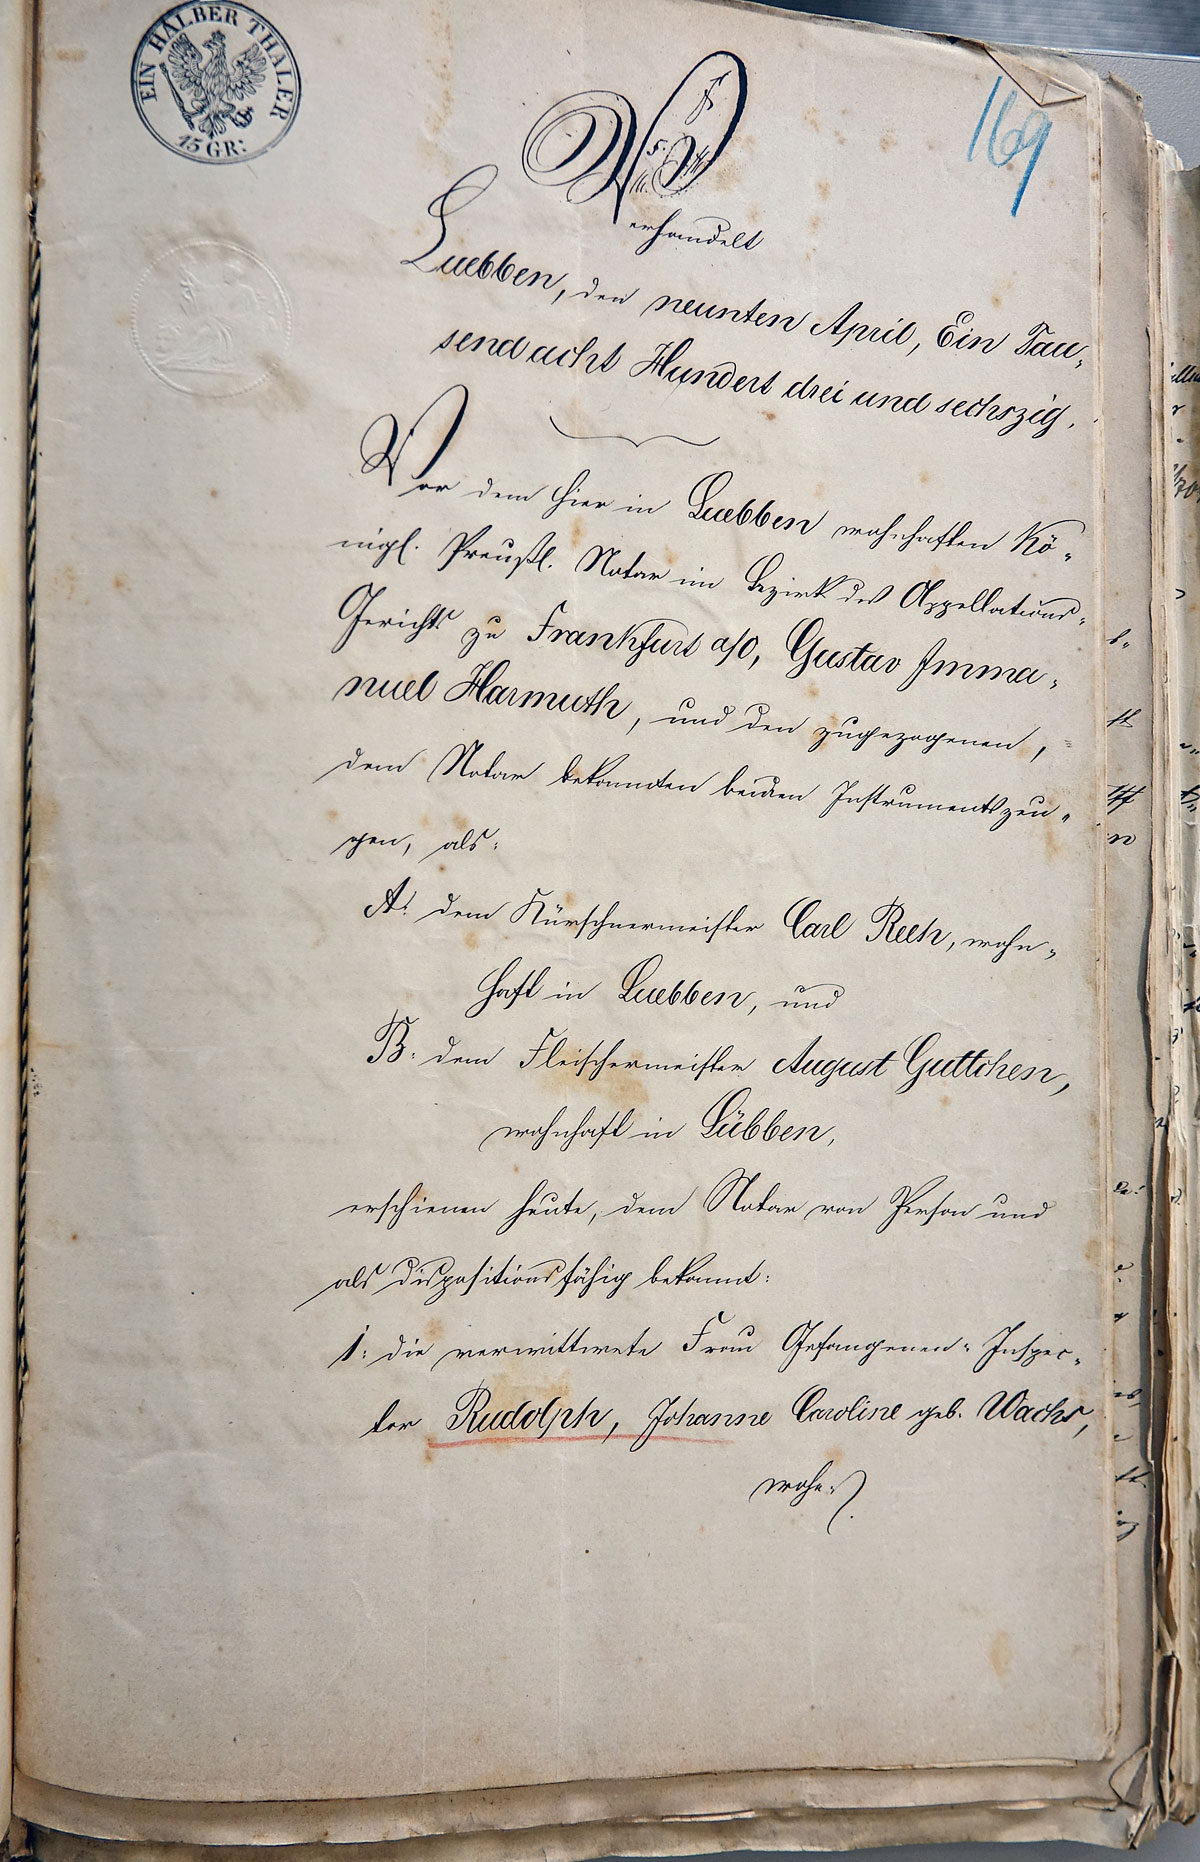 EIN HALBER THALER
15 GR:
169
Verhandelt
Luebben, den neunten April, Ein Tau-
send acht Hundert drei und sechszig.
Vor dem hier in Luebben wohnhaften Kö-
nigl. Preußl. Notar im Bezirk des Appellations-
Gerichts zu Frankfurt a/O, Gustav Imma-
nuel Harmuth, und den zugezogenen,
dem Notar bekannten beiden Instrumentszeu-
gen, als:
A: dem Kürschnermeister Carl Reeh, wohn-
haft in Luebben, und
B: dem Fleischermeister August Guttchen,
wohnhaft in Lübben,
erschienen heute, dem Notar von Person und
als dispositionsfähig bekannt:
1: die verwittwete Frau Gefangenen-Inspec-
tor Rudolph, Johanne Caroline geb. Wachs,
wohn-